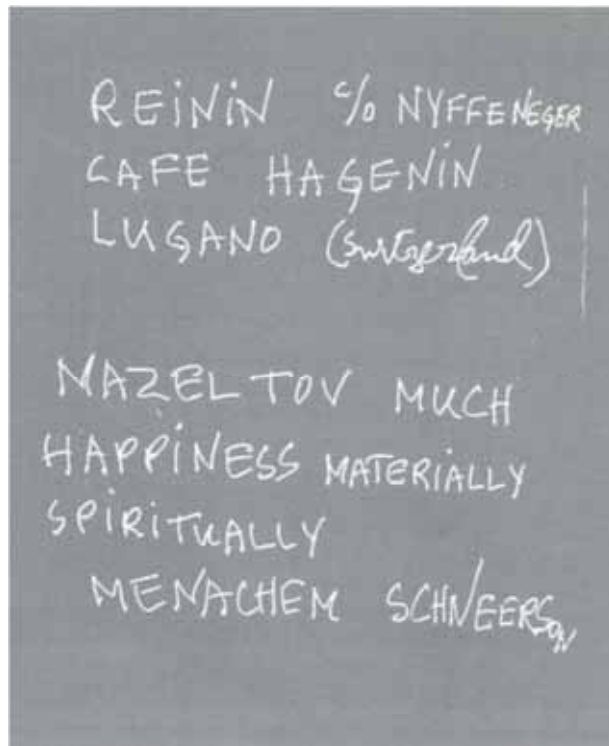 REININ c/o NYFFENEGER
CAFE HAGENIN
LUGANO (Switzerland)
MAZEL TOV MUCH
HAPPINESS MATERIALLY
SPIRITUALLY
MENACHEM SCHNEERSON